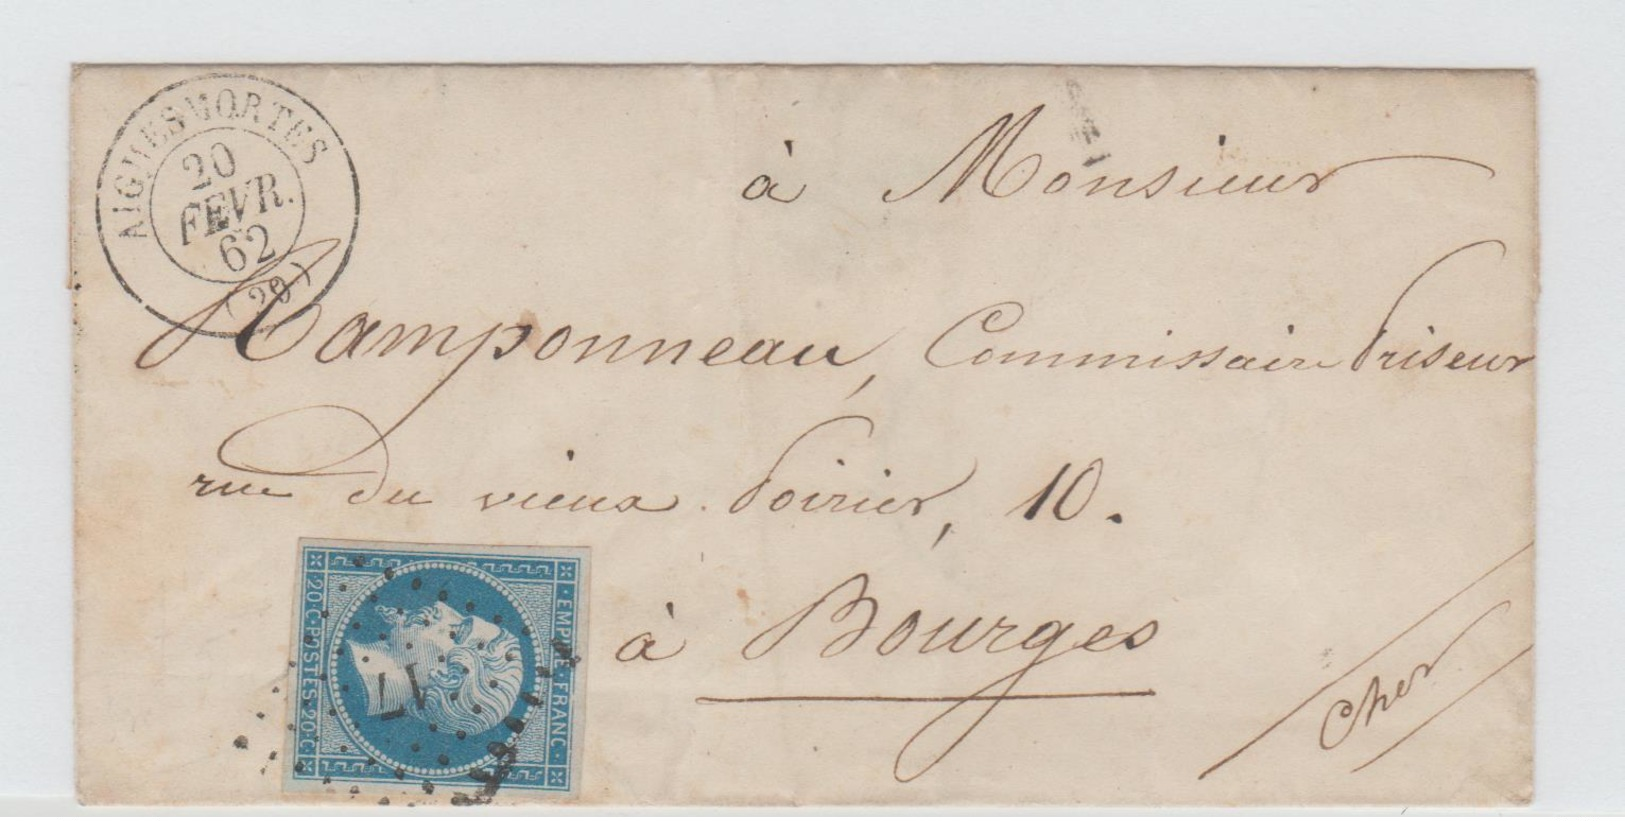 AIGUESMORTES
20
FEVR.
62
(29)
à Monsieur
Ramponneau, Commissaire Priseur
rue du vieux Poirier, 10.
à Bourges
Cher
EMPIRE·FRANC·
20·C·POSTES·20·C·
17